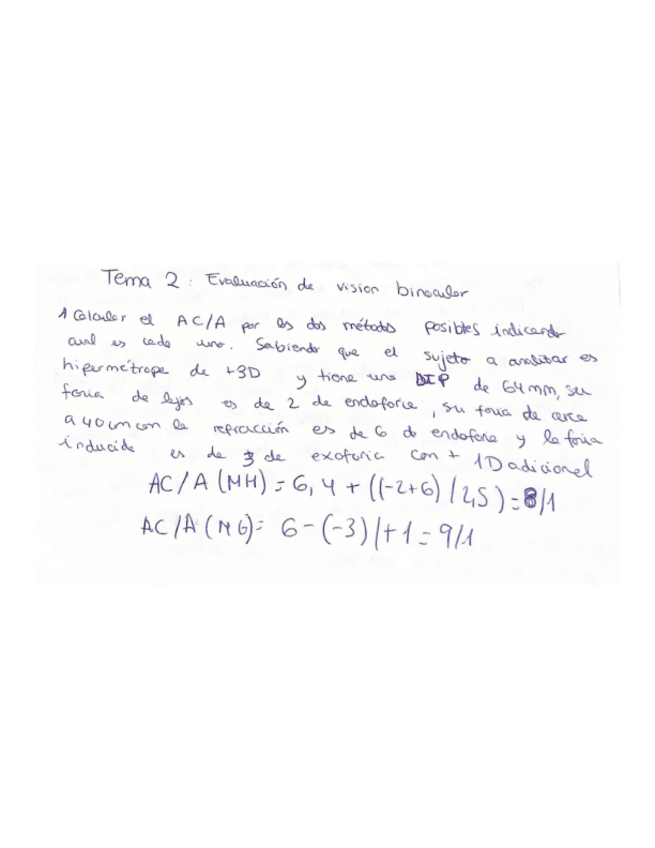 Tema 2: Evaluación de vision binocular
1 Calcular el AC/A por los dos métodos posibles indicando
cual es cada uno. Sabiendo que el sujeto a analizar es
hipermétrope de +3D y tiene una DIP de 64mm, su
foria de lejos es de 2 de endoforia, su foria de cerca
a 40cm con la refracción es de 6 de endoforia y la foria
inducida es de 3 de exoforia con + 1D adicional
AC/A (MH) = 6,4 + ((-2+6) / 2,5) = 8/1
AC/A (MG) = 6-(-3)/+1 = 9/1